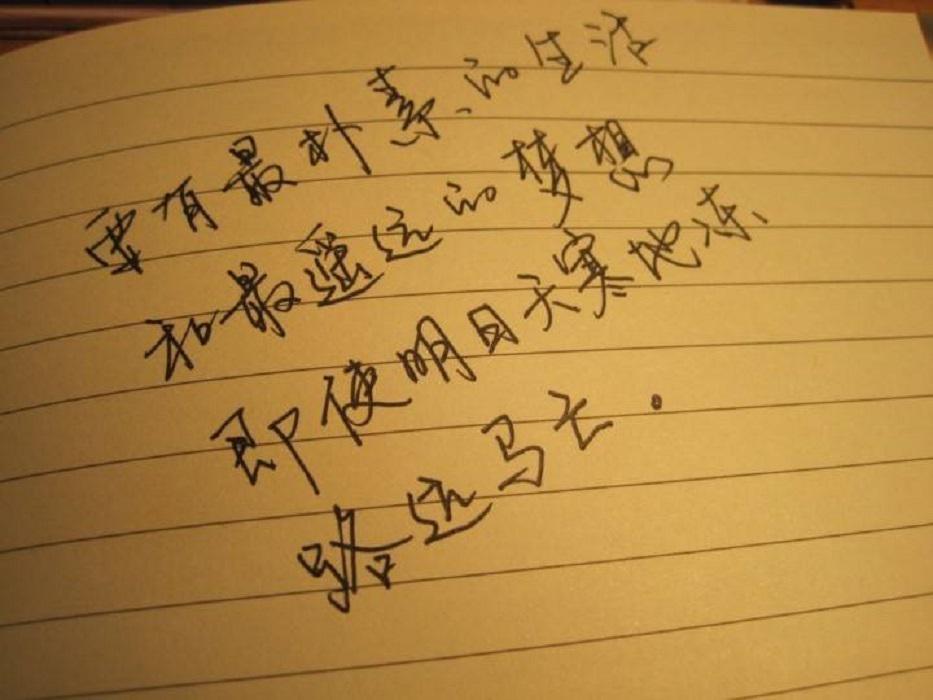 要有最朴素的生活
和最遥远的梦想
即使明日天寒地冻
路远马亡.